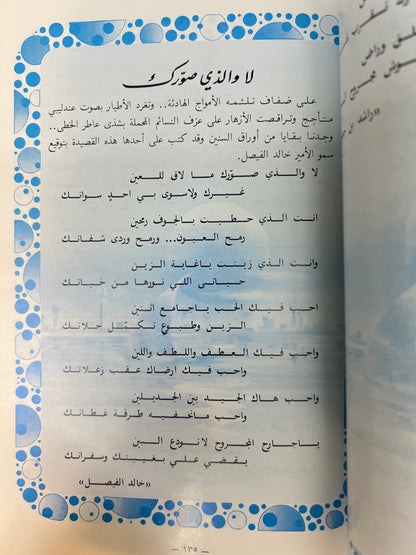 لا والذي صوّرك
على ضفاف تلثمه الأمواج الهادئة.. وتغرد الأطيار بصوت عندليبي
متأجج وتراقصت الأزهار على عزف النسائم المحملة بشذى عاطر الخطى..
وجدنا بقايا من أوراق السنين وقد كتب على أحدها هذه القصيدة بتوقيع
سمو الأمير خالد الفيصل.
لا والذي صورك ما لاق للعين
غيرك ولاسوى بي احدٍ سواتك
انت الذي حطيت بالجوف رمحين
رمح العيون... ورمح وردى شفاتك
وانت الذي زينت ياغاية الزين
حياتى اللي نورها من حياتك
احب فيك الحب ياجامع اثنين
الزين وطبوعٍ تكمّل حلاتك
واحب فيك العطف واللطف واللين
واحب فيك ارضاك عقب زعلاتك
واحب هاك الجيد بين الجديلين
واحب ماتخفيه طرقة غطاتك
ياجارح المجروح لاتودع البين
يقضي علي بغيبتك وسفراتك
«خالد الفيصل»
— ١٣٥ —